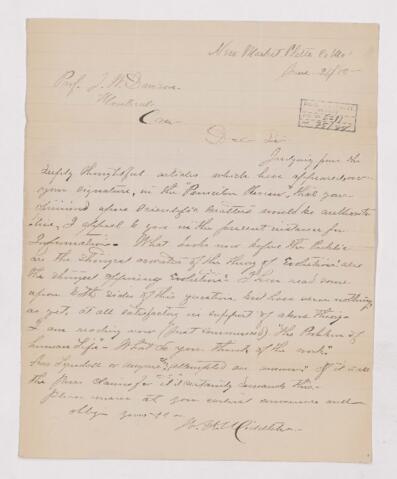 New Market Platte Co Mo
June
Prof. J. W. Dawson
Montreal
Can
Dear Sir
Judging from the
deeply thoughtful articles which have appeared over
your signature, in the "Princeton Review", that your
opinion upon scientific matters would be authorita-
tive, I appeal to you in the present instance for
information. What books now before the Public
are the strongest in of the theory of Evolution? also
the strongest opposing Evolution? I have read some
upon both sides of this question but have seen nothing
as yet, at all satisfactory in support of above theory.
I am reading now (just commenced) "The Problem of
human Life". What do you think of the work?
Has Tyndall or any attempted an answer? If it is as
the Press claims for it it certainly demands this.
Please answer at your earliest convenience and
oblige yours